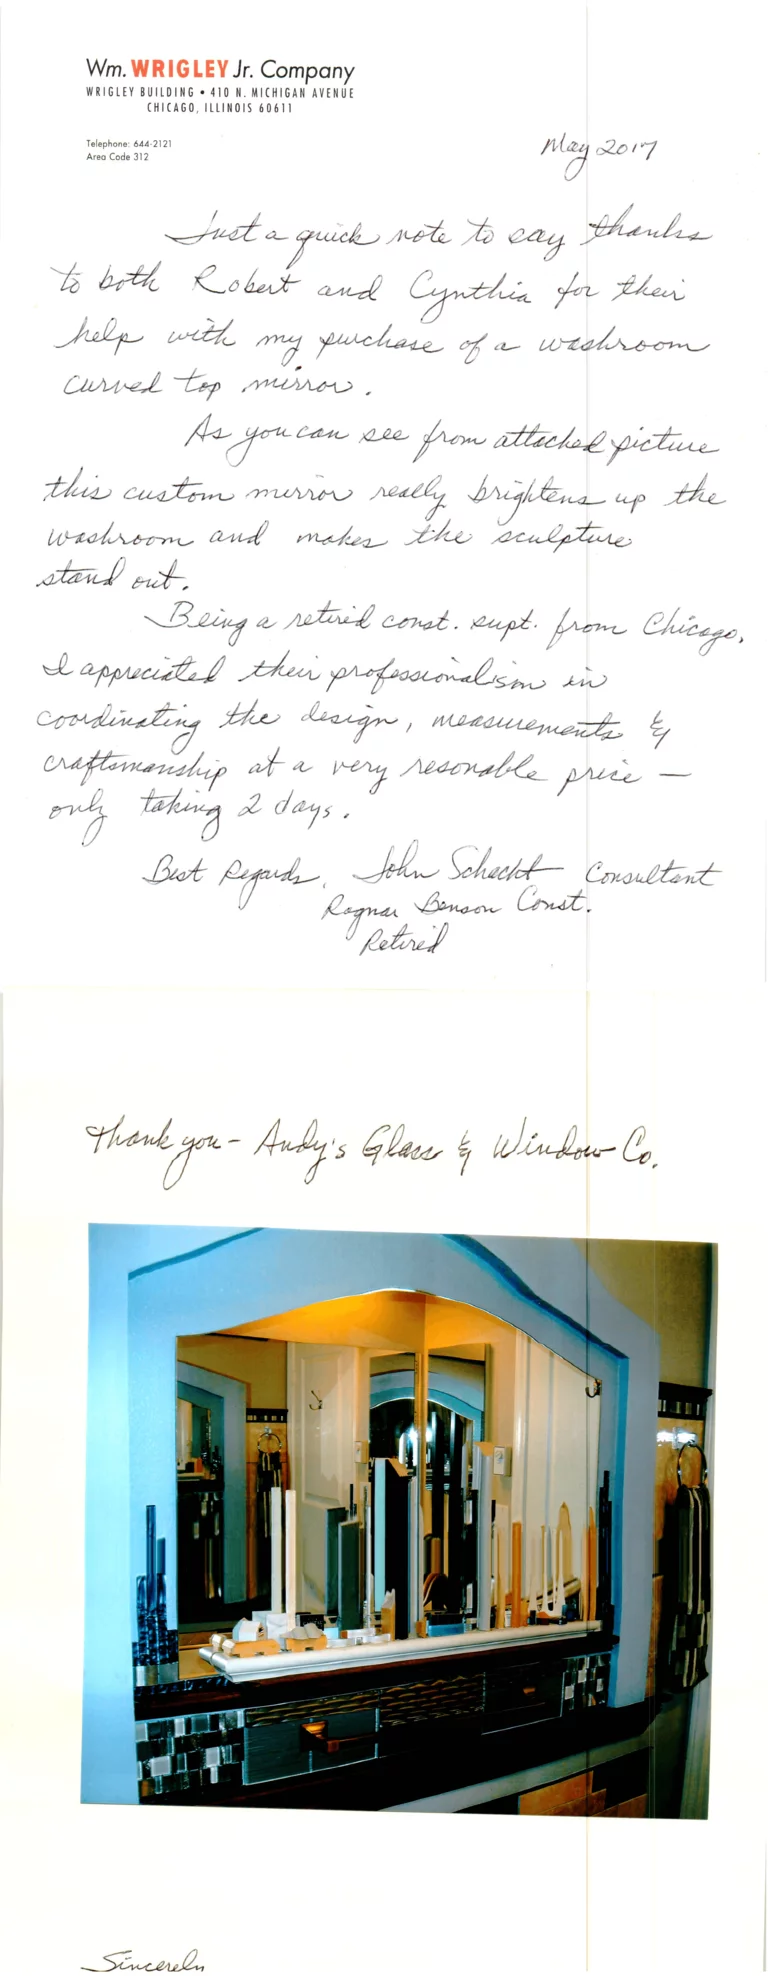 Wm. WRIGLEY Jr. Company
WRIGLEY BUILDING • 410 N. MICHIGAN AVENUE
CHICAGO, ILLINOIS 60611
Telephone: 644-2121
Area Code 312
May 2017
Just a quick note to say thanks
to both Robert and Cynthia for their
help with my purchase of a washroom
curved top mirror.
As you can see from attached picture
this custom mirror really brightens up the
washroom and makes the sculpture
stand out.
Being a retired const. supt. from Chicago,
I appreciated their professionalism in
coordinating the design, measurements &
craftsmanship at a very resonable price –
only taking 2 days.
Best Regards, John Schacht Consultant
Ragnar Benson Const.
Retired
Thank you – Andy's Glass & Window Co.
Sincerely